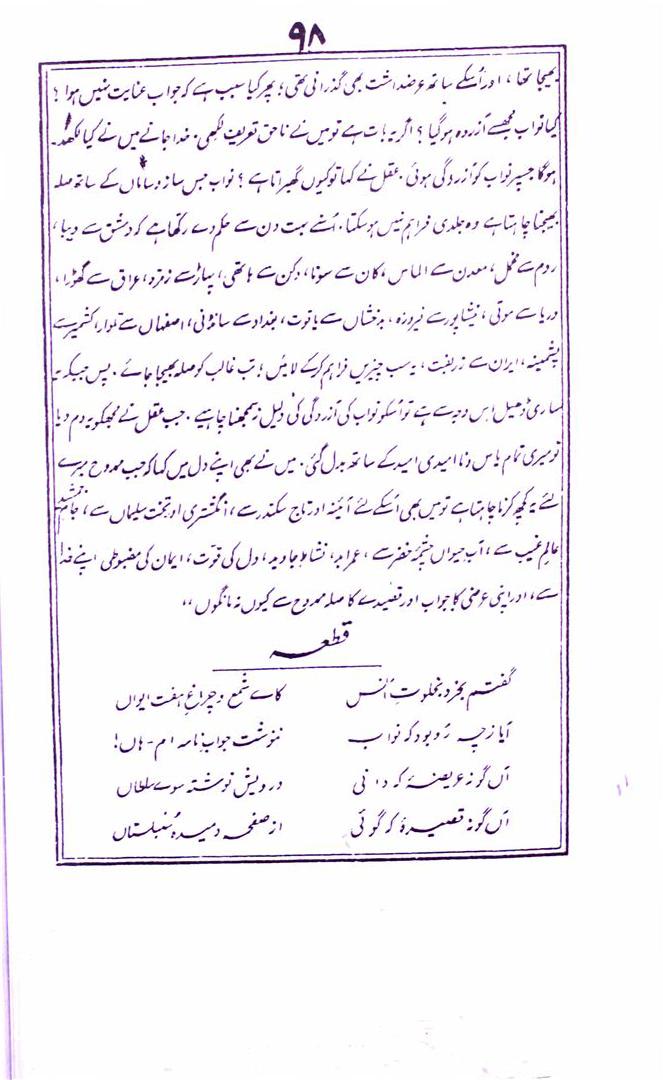 ۹۸
بھیجا تھا، اور اُسکے ساتھ عرضداشت بھی گذرانی تھی؛ پھر کیا سبب ہے کہ جواب عنایت نہیں ہوا؟
کیا نواب مجھسے آزردہ ہوگیا؟ اگر یہ بات ہے تو میں نے ناحق تعریف لکھی. خدا جانے میں نے کیا لکھدیا
ہوگا جسپر نواب کو آزردگی ہوئی. عقل نے کہا تو کیوں گھبراتا ہے؟ نواب جس ساز و ساماں کے ساتھ صلہ
بھیجنا چاہتا ہے وہ جلدی فراہم نہیں ہو سکتا. اُسنے بہت دن سے حکم دے رکھا ہے کہ دمشق سے دیبا،
روم سے مخمل، معدن سے الماس، کان سے سونا، دکن سے ہاتھی، پہاڑ سے زمرد، عراق سے گھوڑا،
دریا سے موتی، نیشاپور سے فیروزہ، بدخشاں سے یاقوت، بغداد سے سانڈنی، اصفہان سے تلوار، کشمیر سے
پشمینہ، ایران سے زربفت، یہ سب چیزیں فراہم کرکے لائیں؛ تب غالب کو صلہ بھیجا جائے. پس جبکہ یہ
ساری ڈھیل اس وجہ سے ہے تو اُسکو نواب کی آزردگی کی دلیل نہ سمجھنا چاہیے. جب عقل نے مجھکو یہ دم دیا
تو میری تمام یاس و ناامیدی امید کے ساتھ بدل گئی. میں نے بھی اپنے دل میں کہا کہ جب ممدوح میرے
لئے یہ کچھ کرنا چاہتا ہے تو میں بھی اُسکے لئے آئینہ اور تاج سکندر سے، انگشتری اور تخت سلیماں سے، جام جمشید
عالمِ غیب سے، آبِ حیواں چشمۂ خضر سے، عمرِ ابد، نشاطِ جاوید، دل کی قوت، ایمان کی مضبوطی اپنے خدا
سے، اور اپنی عرضی کا جواب اور قصیدے کا صلہ ممدوح سے کیوں نہ مانگوں،،
قطعہ
گفتم بخرد بخلوتِ اُنس کاے شمع و چراغِ ہفت ایواں
آیا زچہ رُو بود کہ نواب ننوشت جوابِ نامہ ام - ہاں!
آں گونہ عریضۂ کہ دانی درویش نوشتہ سوے سلطاں
آں گونہ قصیدۂ کہ گوئی از صفحہ دمیدہ سُنبلستاں